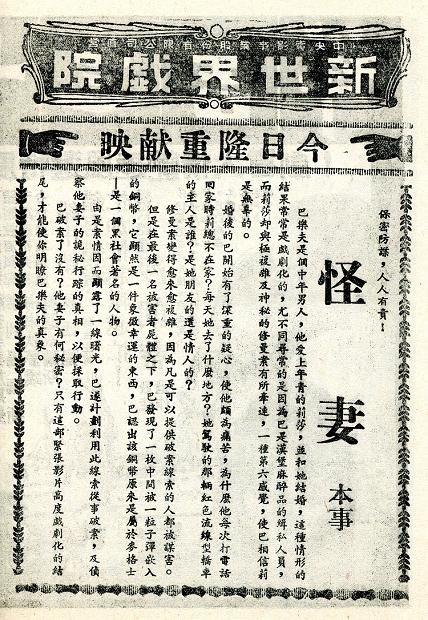 中央電影事業股份有限公司直營
新世界戲院
今日隆重献映
保密防諜，人人有責！
怪妻 本事
巴樂夫是個中年男人，他愛上年青的莉莎，並和她結婚，這種情形的
結果常常是戲剧化的，尤不同尋常的是因為巴是漢堡麻醉品的緝私人員，
而莉莎却與極複雜及神秘的修曼素有所牽連，一種第六感覺，使巴相信莉莎
是無辜的。
婚後的巴開始有了深重的疑心，使他頗為痛苦，為什麼他每次打電話
回家時莉總不在家？每天她去了什麼地方？她駕駛的那輛紅色流線型轎車
的主人是誰？是她朋友的還是情人的？
修曼素變得愈來愈複雜，因為凡是可以提供破案線索的人都被謀害。
但是在最後一名被害者屍體之下，巴發現了一枚中間被一粒子彈嵌入
的銅幣，它顯然是一件象徵幸運的東西，巴認出該銅幣原來是屬於麥格士
—是一個黑社會著名的人物。
由是案情因而顯露了一線曙光，巴遂計劃利用此線索從事破案，及偵
察他妻子的詭秘行踪的真相，以便採取行動。
巴破案了沒有？他妻子有何秘密？只有這部緊張影片高度戲劇化的結
尾，才能使你明瞭巴樂夫的真象。